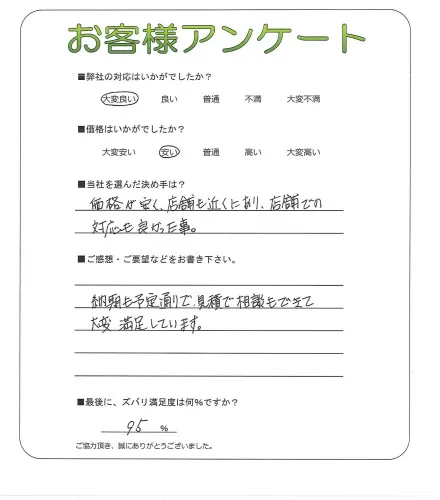 お客様アンケート
■弊社の対応はいかがでしたか？
大変良い 良い 普通 不満 大変不満
■価格はいかがでしたか？
大変安い 安い 普通 高い 大変高い
■当社を選んだ決め手は？
価格が安く、店舗も近くにあり、店舗での
対応も良かった事。
■ご感想・ご要望などをお書き下さい。
納期も予定通りで、見積で相談もできて
大変満足しています。
■最後に、ズバリ満足度は何%ですか？
95 %
ご協力頂き、誠にありがとうございました。